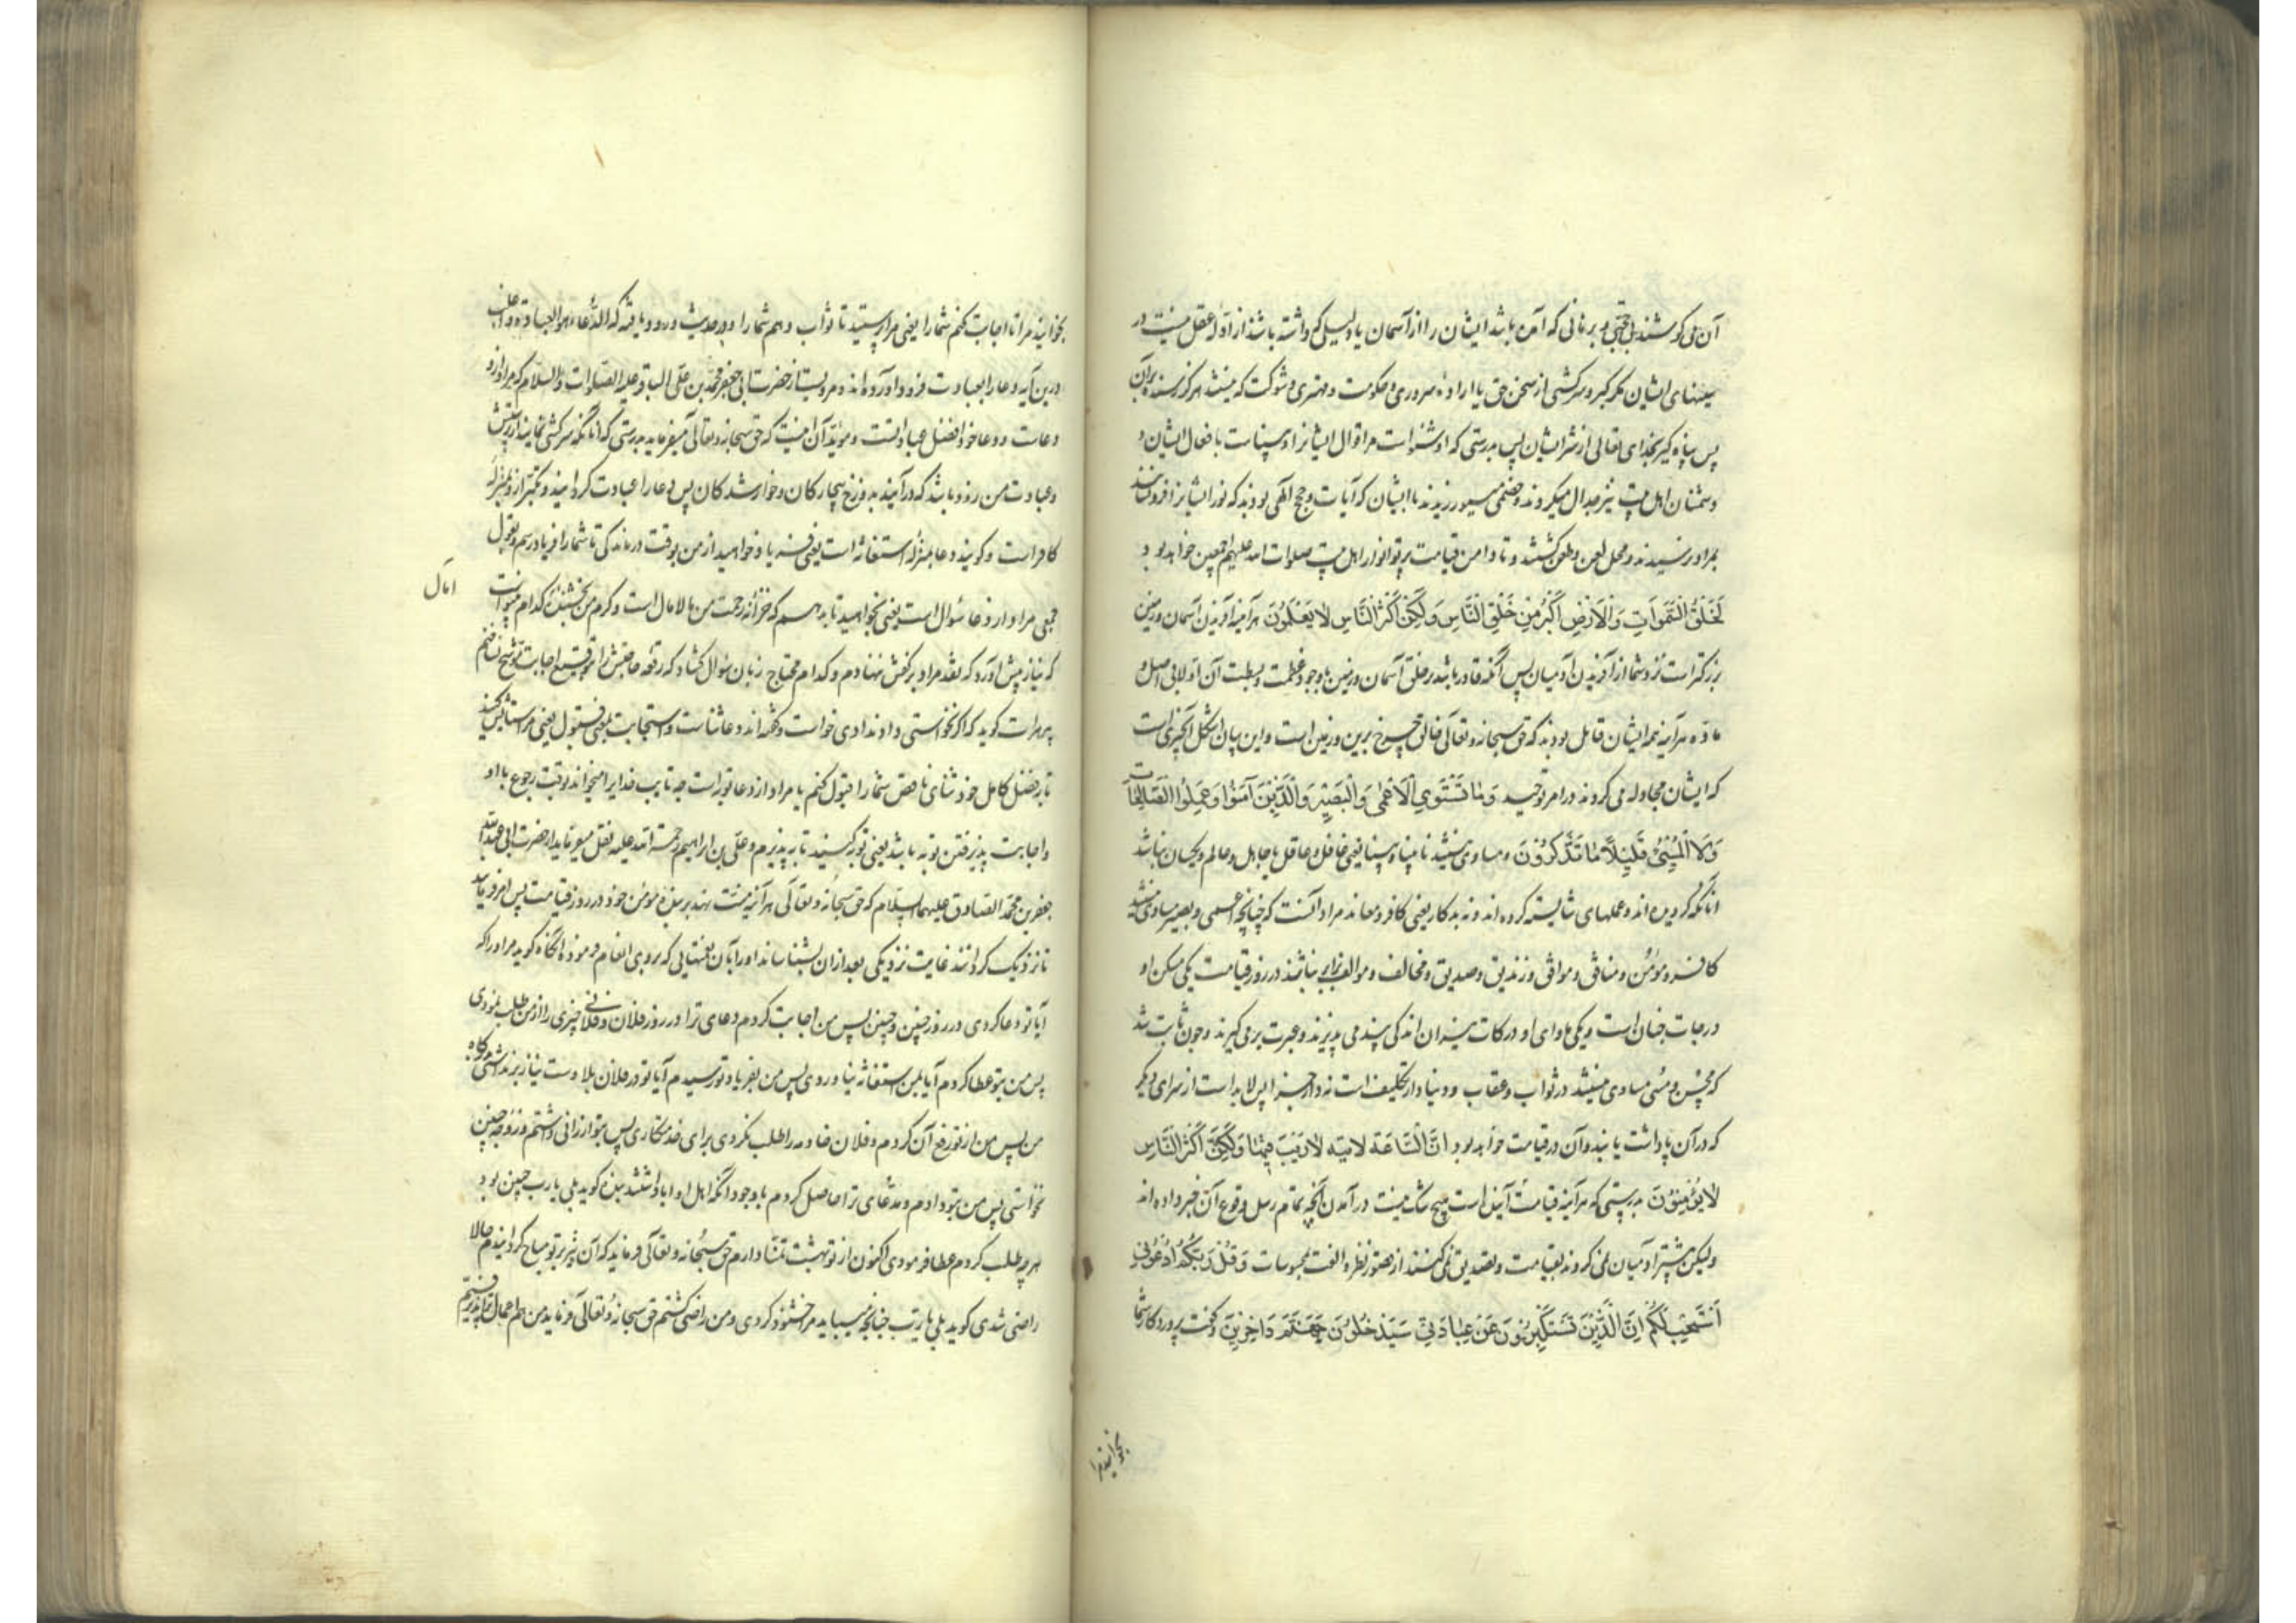 آن می کوشند بی حجتی و برهانی که آمده باشد ایشان را از آسمان یا دلیلی که داشته باشند از ادله عقل نیست در
سینهای ایشان مگر کبر و سرکشی از سخن حق یا اراده سروری و حکومت و مهتری و شوکت که نیستند هرگز رسنده بدان
پس پناه گیر بخدای تعالی از شر ایشان پس بدرستی که او شنواست مر اقوال ایشانرا و بیناست بافعال ایشان و
دشمنان اهل بیت نیز جدال میکردند و خصمی میورزیدند با ایشان که آیات و حجج الهی بودند که نور ایشانرا فرو نشانند
بمراد نرسیدند و محل لعن و طعن گشتند و تا دامن قیامت پرتو انوار اهل بیت صلوات الله علیهم اجمعین خواهد بود
لَخَلْقُ السَّمٰوَاتِ وَالْاَرْضِ اَكْبَرُ مِنْ خَلْقِ النَّاسِ وَلٰكِنَّ اَكْثَرَ النَّاسِ لَا يَعْلَمُونَ هرآینه آفریدن آسمان و زمین
بزرگتر است نزد شما از آفریدن آدمیان پس آنکه قادر باشد بر خلق آسمان و زمین با وجود عظمت و بسطت آن اولا بی اصل و
ماده هرآینه همه ایشان قایل بودند که حق سبحانه و تعالی خالق چرخ برین و زمین است و این بیان اشکل آنچیزی است
که ایشان مجادله می کردند در امر توحید وَمَا يَسْتَوِي الْاَعْمٰى وَالْبَصِيرُ وَالَّذِينَ آمَنُوا وَعَمِلُوا الصَّالِحَاتِ
وَلَا الْمُسِيءُ قَلِيلًا مَا تَتَذَكَّرُونَ و مساوی نیستند نابینا و بینا یعنی غافل و عاقل یا جاهل و عالم و یکسان نباشد
آنانکه گرویده اند و عملهای شایسته کرده اند و نه بدکار یعنی کافر و معاند مراد آنست که چنانچه اعمی و بصیر مساوی نیستند
کافر و مؤمن و منافق و موافق و زندیق و صدیق و مخالف و موالف برابر نباشند در روز قیامت یکی مسکن او
درجات جنان است و یکی ماوای او درکات نیران اندکی پند می پذیرند و عبرت بر می گیرند و چون ثابت شد
که محسن و مسئ مساوی نیستند در ثواب و عقاب و دنیا دار تکلیف است نه دار جزا پس لابد است از سرای دیگر
که در آن پاداشت یابند و آن در قیامت خواهد بود اِنَّ السَّاعَةَ لَآتِيَةٌ لَا رَيْبَ فِيهَا وَلٰكِنَّ اَكْثَرَ النَّاسِ
لَا يُؤْمِنُونَ بدرستی که هرآینه قیامت آینده است هیچ شک نیست در آمدن آنچه تمام رسل بوقوع آن خبر داده اند
ولیکن بیشتر آدمیان نمی گروند بقیامت و تصدیق نمی کنند از قصور نظر و الفت بمحسوسات وَقَالَ رَبُّكُمُ ادْعُونِي
اَسْتَجِبْ لَكُمْ اِنَّ الَّذِينَ يَسْتَكْبِرُونَ عَنْ عِبَادَتِي سَيَدْخُلُونَ جَهَنَّمَ دَاخِرِينَ و گفت پروردگار شما
بخوانید مرا
بخوانید مرا تا اجابت کنم شما را یعنی مرا پرستید تا ثواب دهم شما را و در حدیث ورود یافته که الدعاء هو العبادة
درین آیه دعا را بعبادت فرود آورده اند و مرویست از حضرت ابی جعفر محمد بن علی الباقر علیه الصلوات والسلام که مراد ازو
دعاست و دعا خود افضل عبادتست و مؤید آن اینست که حق سبحانه و تعالی میفرماید بدرستی که آنانکه سرکشی نمایند از پرستش
و عبادت من زود باشد که درآیند بدوزخ بیچارگان و خوار شدگان پس دعا را عبادت گردانید و تکبر ازو بمنزله
کافر است و گویند دعا بمنزله استغاثه است یعنی فریاد خواهید از من بوقت درماندگی تا شما را فریاد رسم و بقول
جمعی مراد از دعا سؤال است یعنی بخواهید تا بدهم که خزانه رحمت من مالامال است و کرم من بخشنده کدام
امآل
که نیاز پیش آورد که نقد مراد بر کفش ننهادم و کدام محتاج زبان سؤال گشاد که رقعه حاجتش را بتوقیع اجابت موشح نساختم
پیر هرات گوید که اگر نخواستی داد ندادی خواست و گفته اند دعا ثناست و استجابت بمعنی قبول یعنی مرا ستایش کنید
تا بفضل کامل خود ثنای ناقص شما را قبول کنم یا مراد از دعا توبه است چه تایب خدایرا میخواند بوقت رجوع با او
و اجابت پذیرفتن توبه باشد یعنی توبه کنید تا بپذیرم و علی بن ابراهیم رحمة الله علیه نقل میفرماید از حضرت ابی عبدالله
جعفر بن محمد الصادق علیهما السلام که حق سبحانه و تعالی هرآینه منت نهد بر بنده مومن خود در روز قیامت پس امر فرماید
تا نزدیک گردانند غایت نزدیکی بعد از آن بشناساند او را بآن نعمتهایی که بروی انعام فرموده آنگاه گوید مر او را که
آیا تو دعا کردی در روز چنین و چنین پس من اجابت کردم دعای ترا در روز فلان و فلانی چیزی را از من طلب نمودی
پس من بتو عطا کردم آیا بمن استغاثه نیاوردی پس من بفریاد تو رسیدم آیا تو در فلان بلا دست نیاز برنداشتی بدرگاه
من پس من از تو رفع آن کردم و فلان خادمه را طلب نکردی برای خدمتکاری پس بتو ارزانی داشتم و زوجه چنین
نخواستی پس من بتو دادم و مدعای ترا حاصل کردم با وجود آنکه اهل او ابا داشتند بنده گوید بلی یا رب چنین بود
هرچه طلب کردم عطا فرمودی اکنون از تو بهشت تمنا دارم حق سبحانه و تعالی فرماید که آن نیز بر تو مباح گردانیدم حالا
راضی شدی گوید بلی یا رب چنانچه میباید مرا خشنود کردی و من راضی گشتم حق سبحانه و تعالی فرماید من هم اعمال ترا پذیرفتم